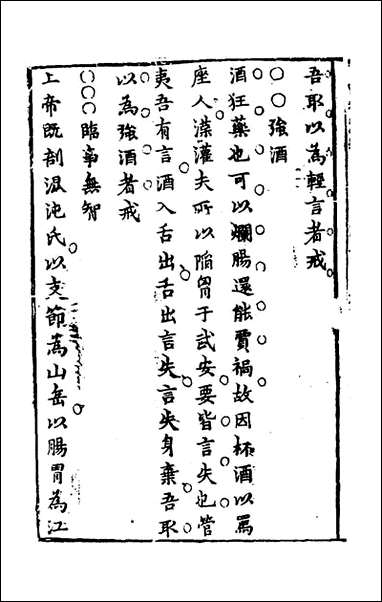 吾取以為輕言者戒
○○強酒
酒狂藥也可以爛腸還能賈禍故因杯酒以罵
座人灌夫所以陷胷于武安要皆言失也管
夷吾有言酒入舌出舌出言失言失身棄吾取
以為強酒者戒
○○○臨事無智
上帝既剖混沌氏以支節為山岳以腸胃為江